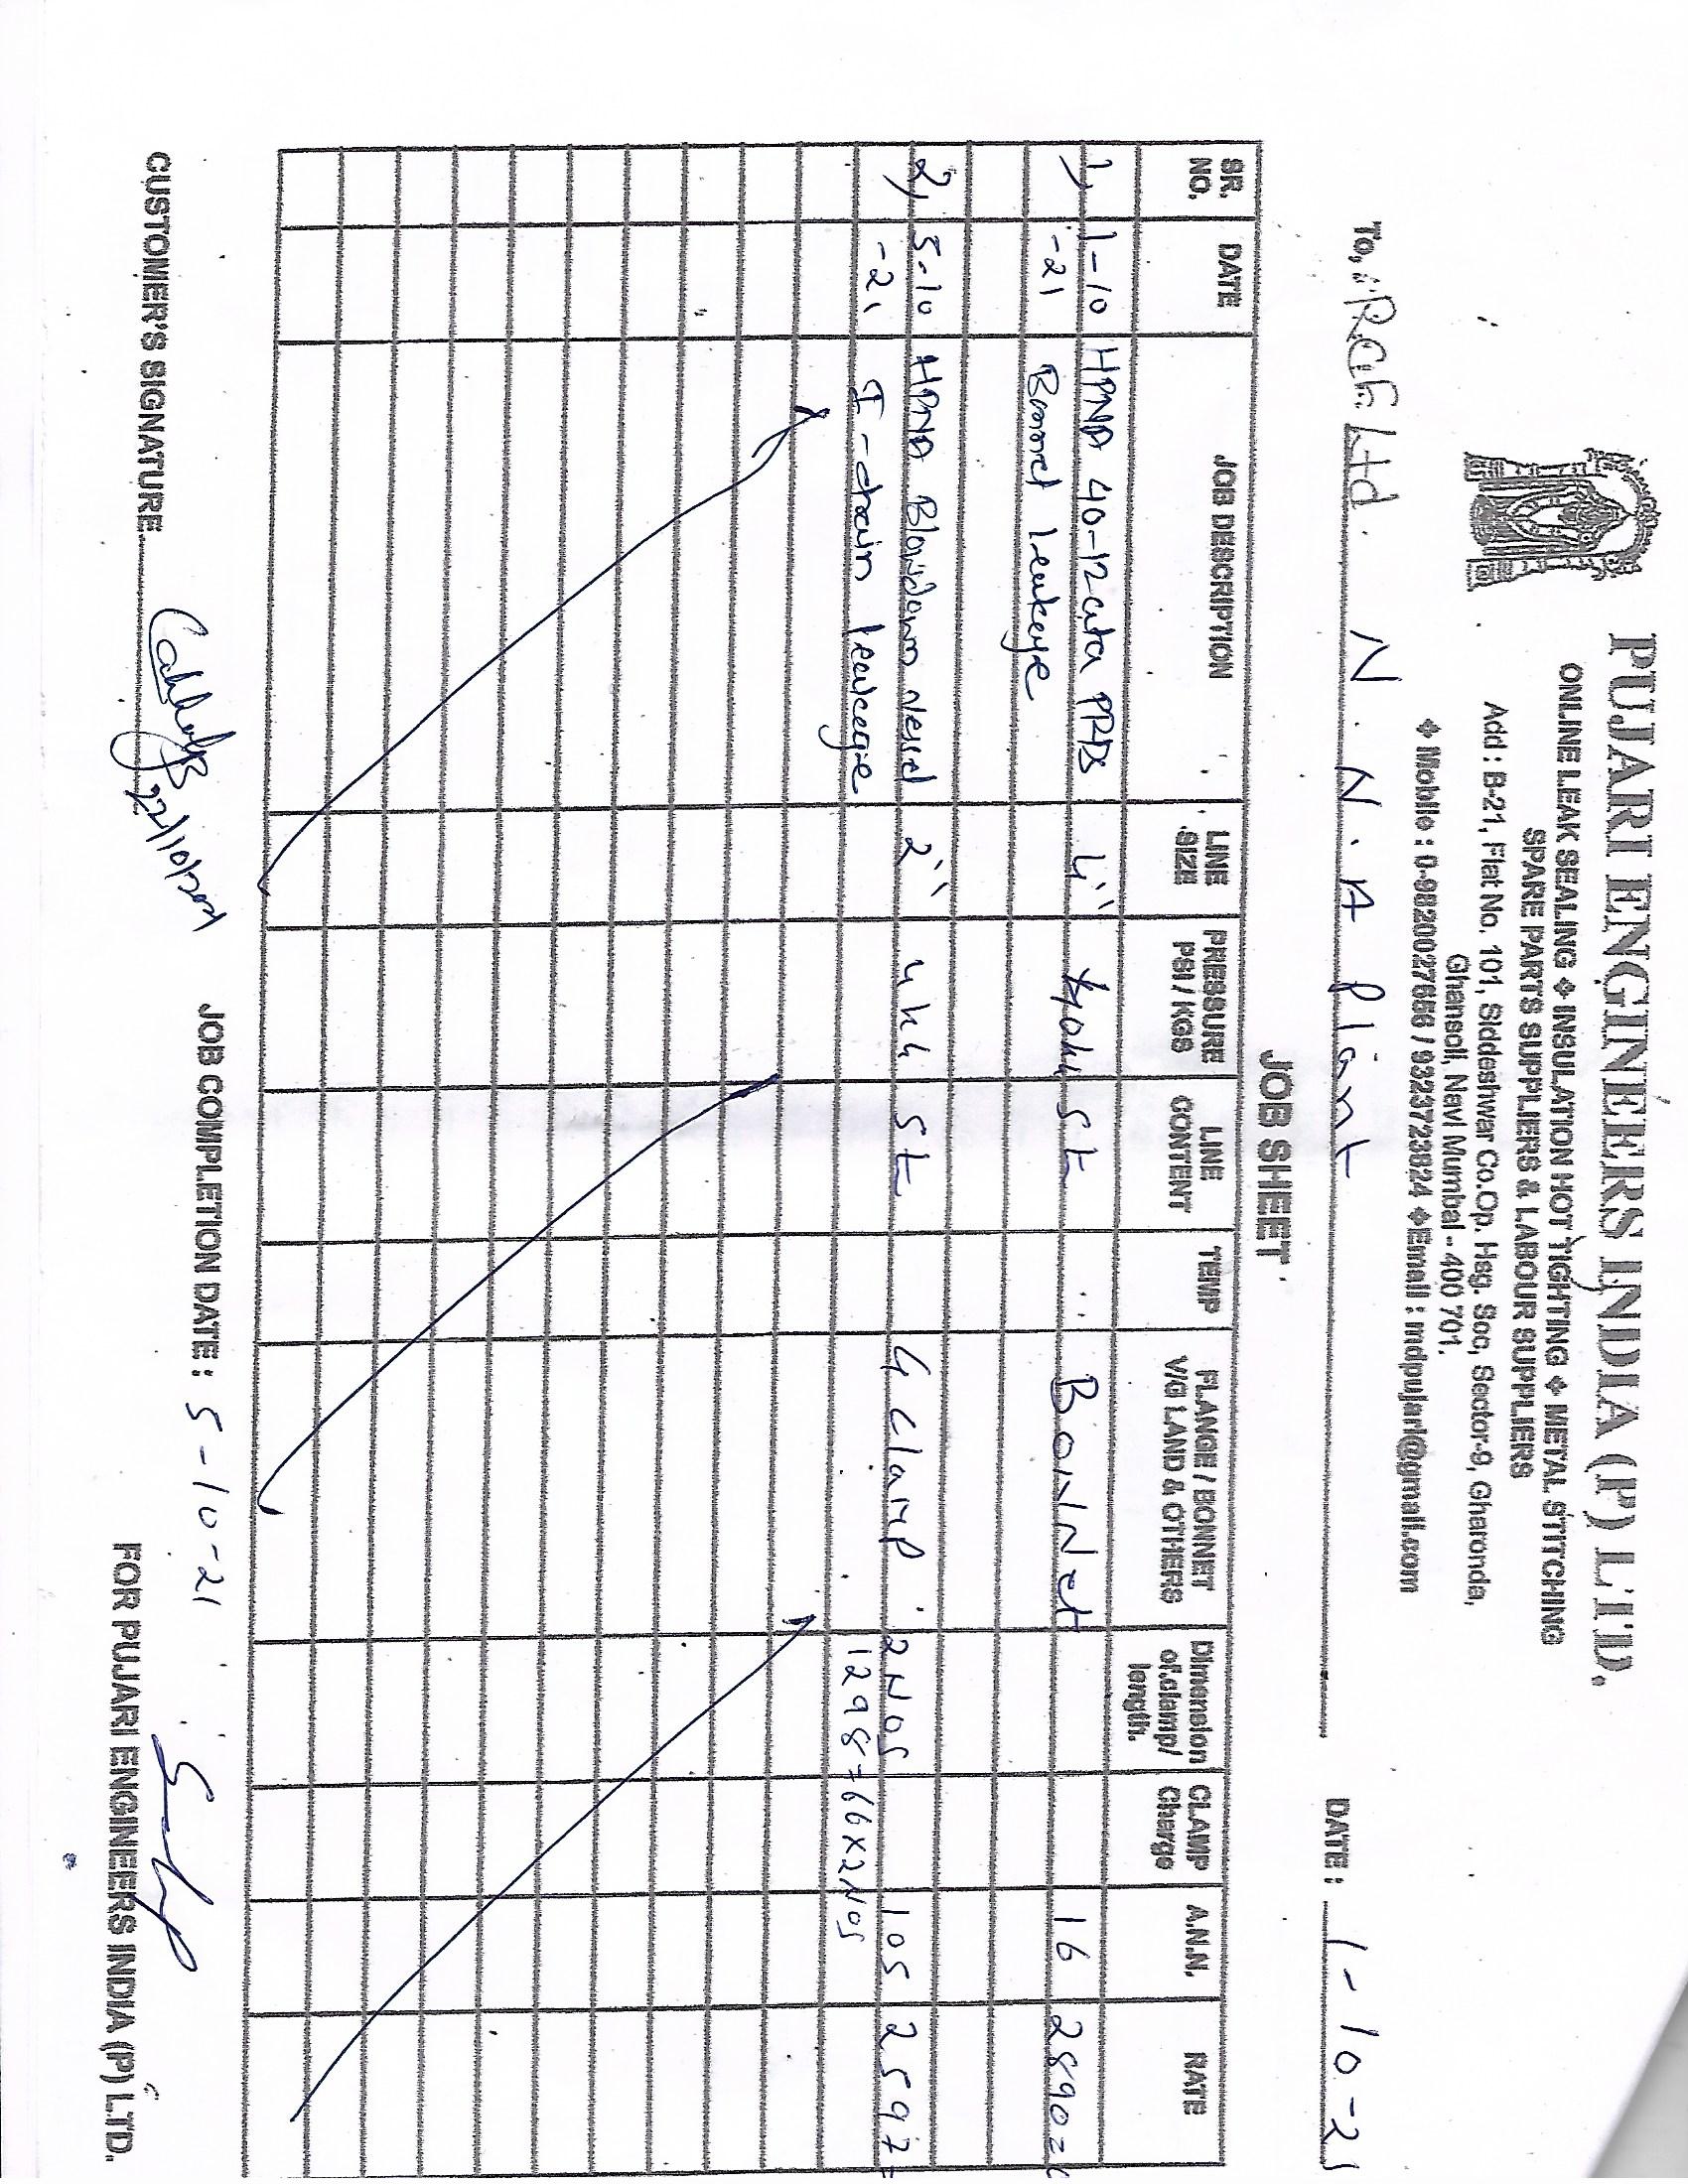 PUJARI ENGINEERS INDIA (P) LTD.
ONLINE LEAK SEALING ❖ INSULATION HOT TIGHTING ❖ METAL STITCHING
SPARE PARTS SUPPLIERS & LABOUR SUPPLIERS
Add : B-21, Flat No. 101, Siddeshwar Co.Op. Hsg. Soc, Sector-9, Gharonda,
Ghansoli, Navi Mumbai - 400 701.
❖ Mobile : 0-9820027656 / 9323723824 ❖Email : mdpujari@gmail.com
To, RCF Ltd. N.N.A Plant DATE : 1-10-21
JOB SHEET
SR. NO. DATE JOB DESCRIPTION LINE SIZE PRESSURE PSI / KGS LINE CONTENT TEMP FLANGE / BONNET V/G LAND & OTHERS Dimension of.clamp/ length. CLAMP Charge A.N.N. RATE
1, 1-10 HPNA 40-12 ata PRDS 4" St BonNet 16 2890=
-21 Bonnet Leakage
2, 5-10 HPNA Blowdown vessel 2" St G clamp 2Nos 105 2597=
-21 I-drain leakage 1298=66x2Nos
CUSTOMER'S SIGNATURE 22/10/2021 JOB COMPLETION DATE : 5-10-21
FOR PUJARI ENGINEERS INDIA (P) LTD.